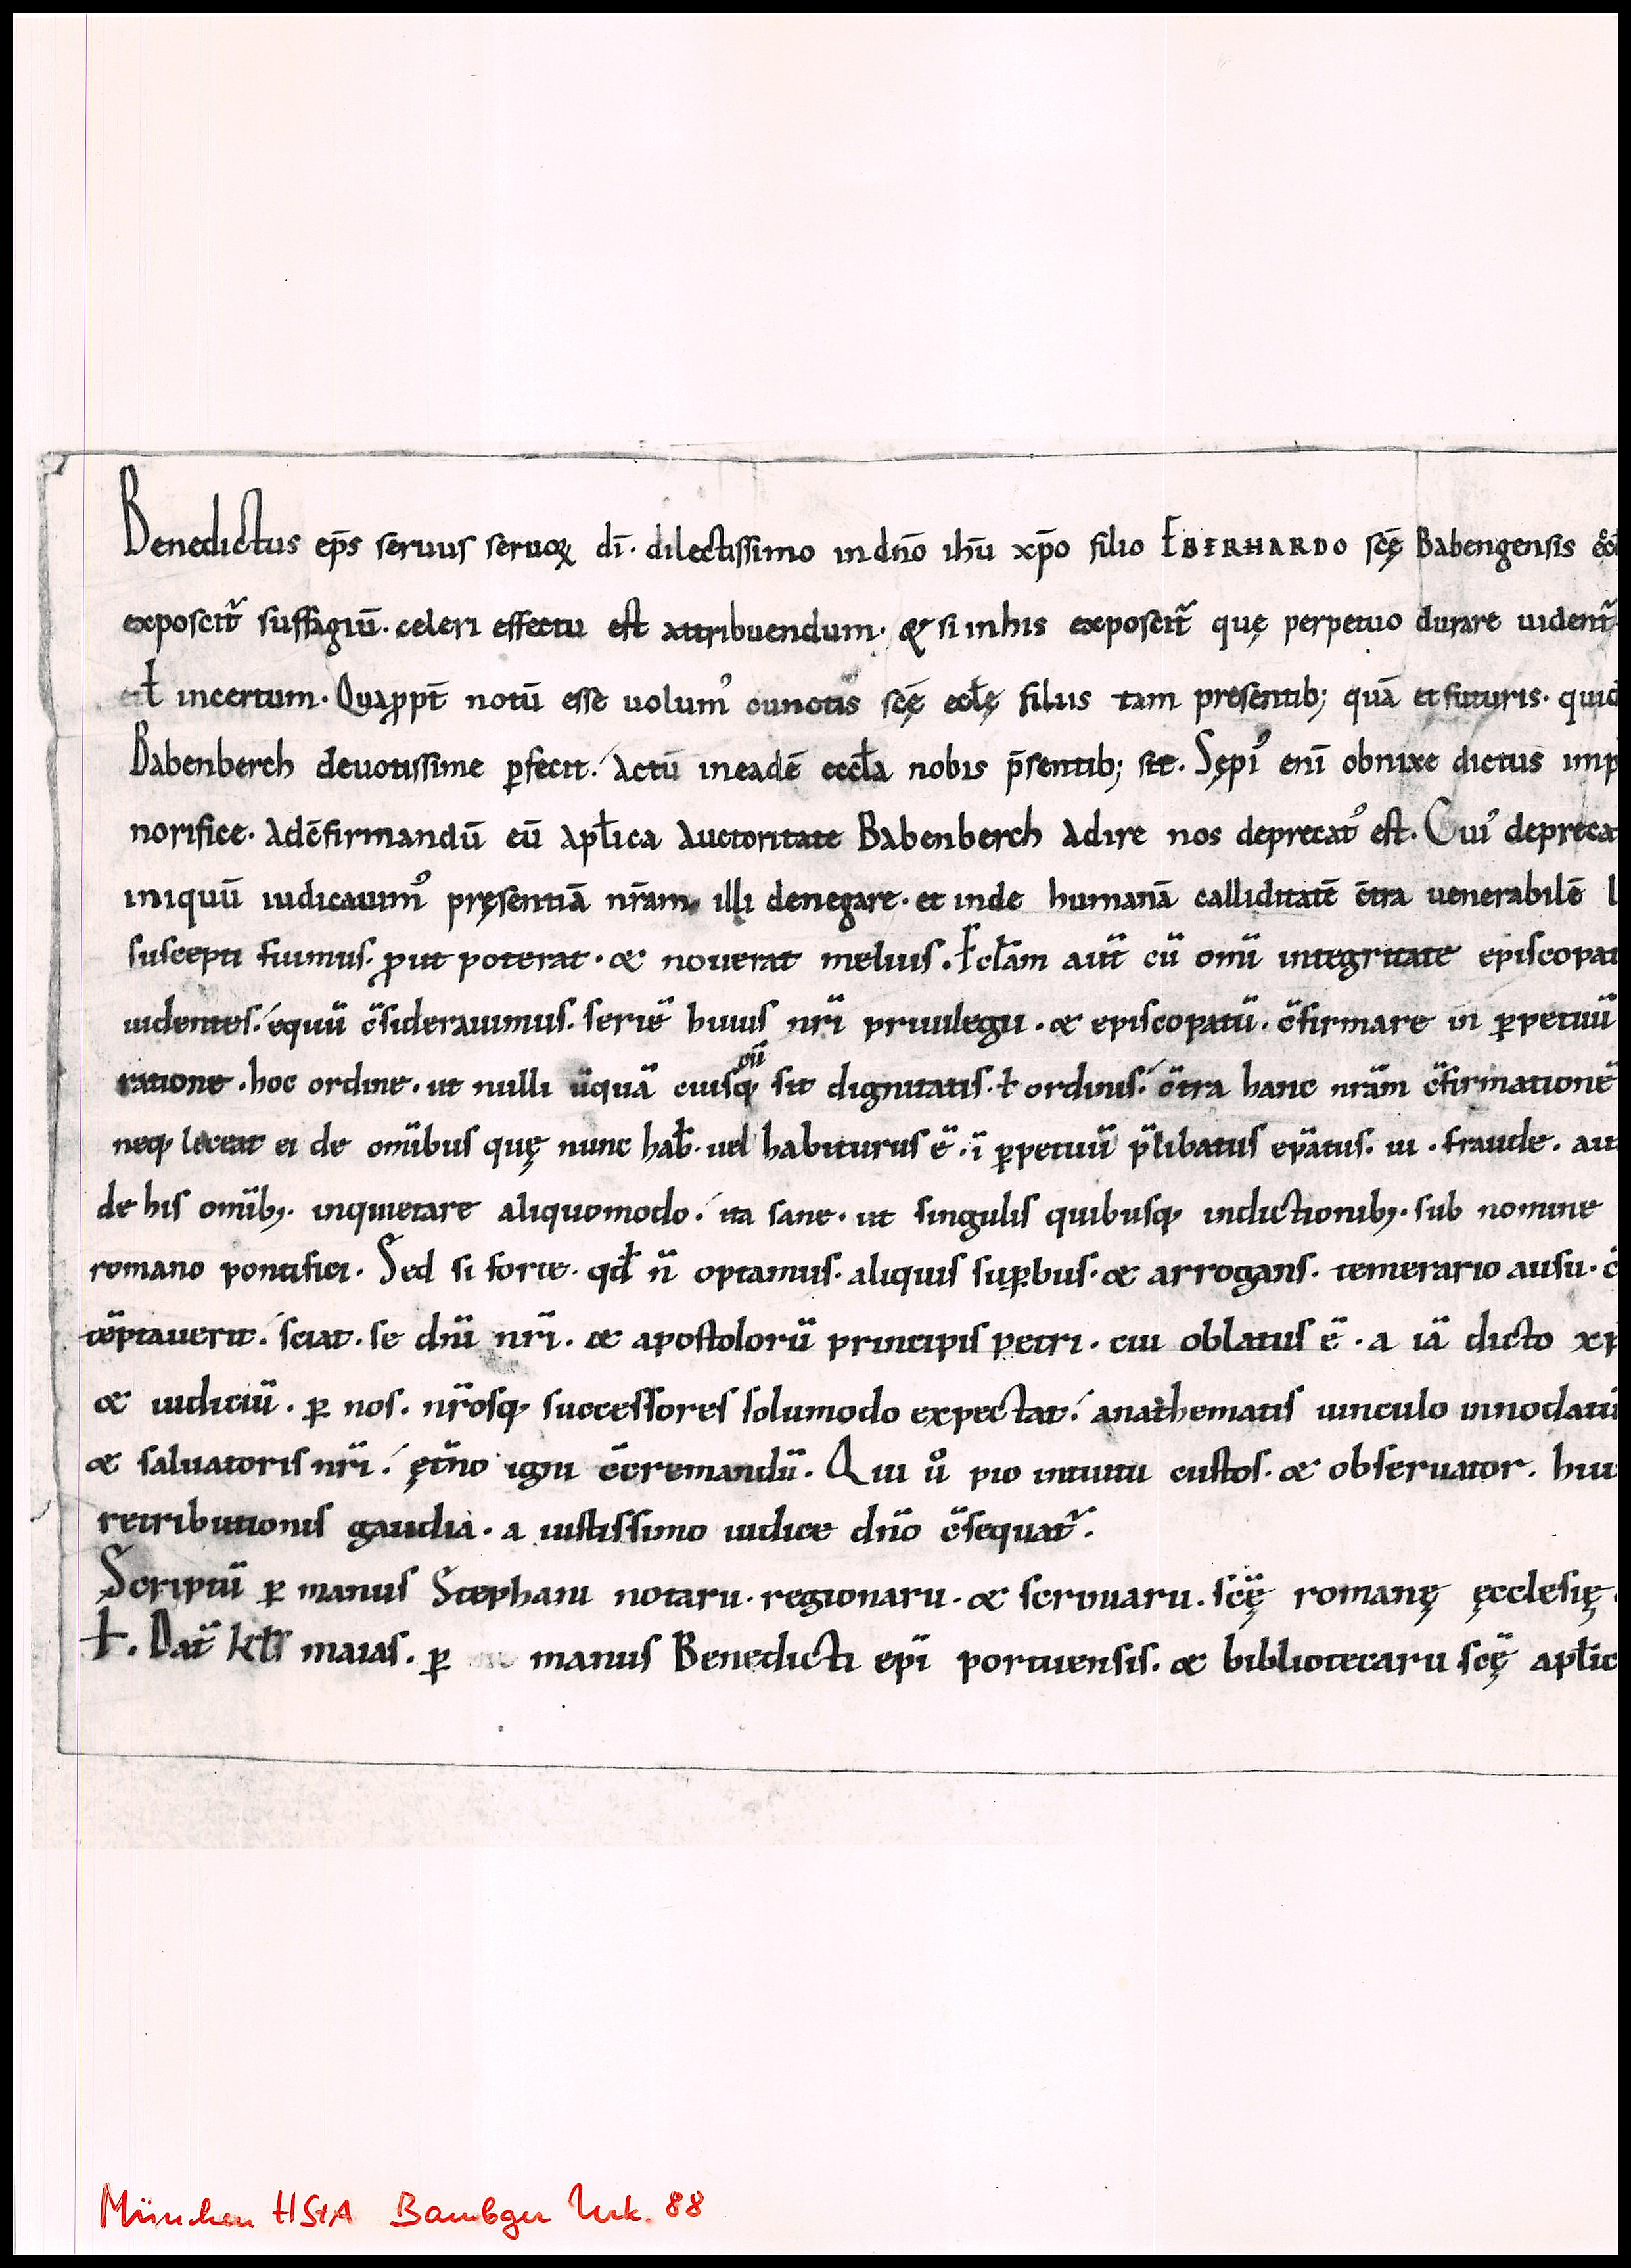 Benedictus ep̄s servus seruoꝝ dī· dilectissimo indn̄o ihū xp̄o filio EBERHARDO scę̄ Babengensis
exposcit᷑ suffragiū· celeri effectu est attribuendum· & si inhis exposcit᷑ quę perpetuo durare uident᷑
incertum· Quaꝓpt̄ notū esse uolumꝰ cunctis scę̄ ecłę filiis tam presentib; quā et futuris· quid
Babenberch deuotissime ꝑfecit· Actū ineadē eccła nobis p̄sentib; sit· Sępiꝰ enī obnixe dictus imp
norifice· Adc̄firmandū eū apłica Auctoritate Babenberch Adire nos deprecatꝰ est· Cuiꝰ depreca
iniquū iudicauimꝰ pręsentiā nr̄am illi denegare· et inde humanā calliditatē c̄tra uenerabilē l
suscepti fuimus· ꝓut poterat· & nouerat melius· Ecłam aut̄ cū om̄i integritate episcopat
uidentes· ęquū c̄siderauimus· seriē huius nr̄i priuilegii· & episcopatū· c̄firmare in ꝑpetuū
ratione· hoc ordine· ut nulli ūquā cuiusꝗ cū sit dignitatis· ł ordinis· c̄tra hanc nr̄am c̄firmationē
neꝗ liceat ei de om̄ibus quę nunc hab̄· uel habiturus ē· ī ꝑpetuū p̄libatus ep̄atus· ui· fraude· aut
de his om̄ib;· inquietare aliquomodo· ita sane· ut singulis quibusꝗ indictionib;· sub nomine
romano pontifici· Sed si forte· qđ n̄ optamus· aliquis suꝑbus· & arrogans· temerario ausu· c̄
tēptauerit· sciat· se dn̄i nr̄i· & apostolorū principis petri· cui oblatus ē· a iā dicto xp
& iudiciū· ꝑ nos· nr̄osꝗ successores solumodo expectat· anathematis uinculo innodatū
& saluatoris nr̄i· ęt̄no igni c̄cremandū· Qui ů pio intuitu custos· & obseruator· hui
retributionis gaudia· a iustissimo iudice dn̄o c̄sequat᷑·
Scriptū ꝑ manus Stephani notarii· regionarii· & scriniarii· scę̄ romanę ęcclesię·
✝· Dat̄ kłs maias· ꝑ manus Benedicti ep̄i portuensis· & bibliotecarii scę̄ apłic
München HStA Bamberger Urk. 88